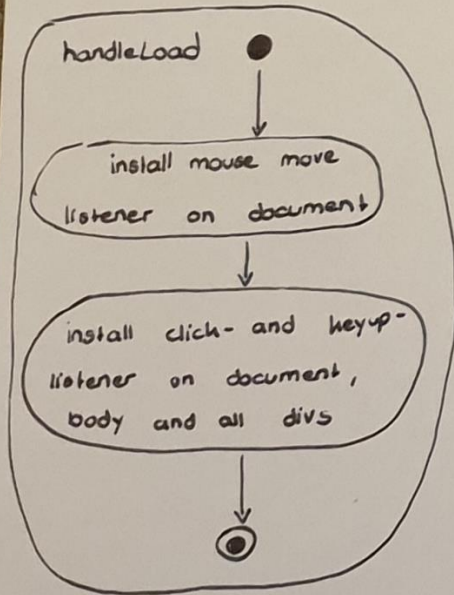 handleLoad
install mouse move
listener on document
install click- and keyup-
listener on document,
body and all divs